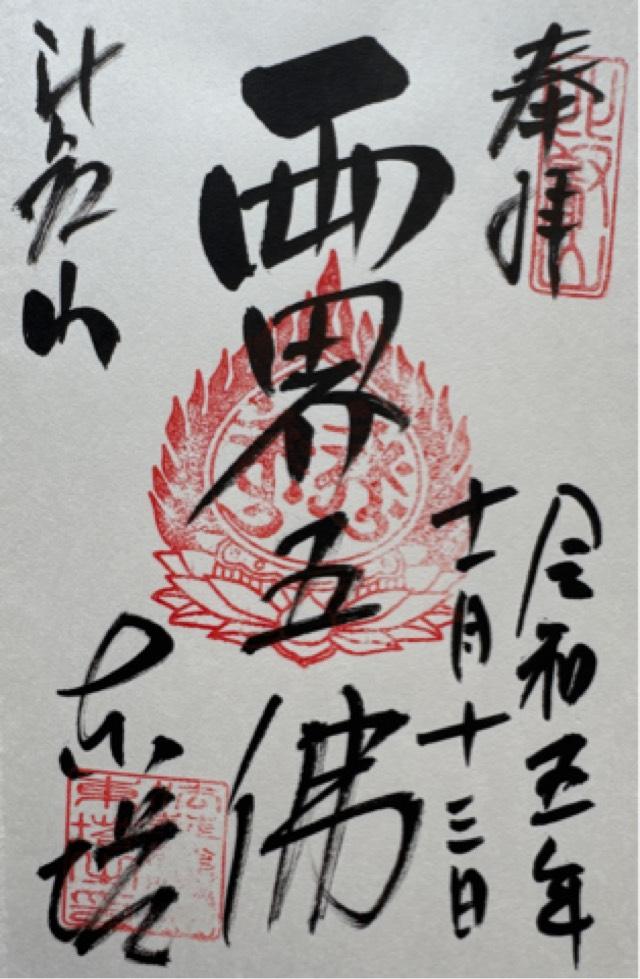 奉拝
令和五年
十一月十三日
両界五佛
比叡山
東塔